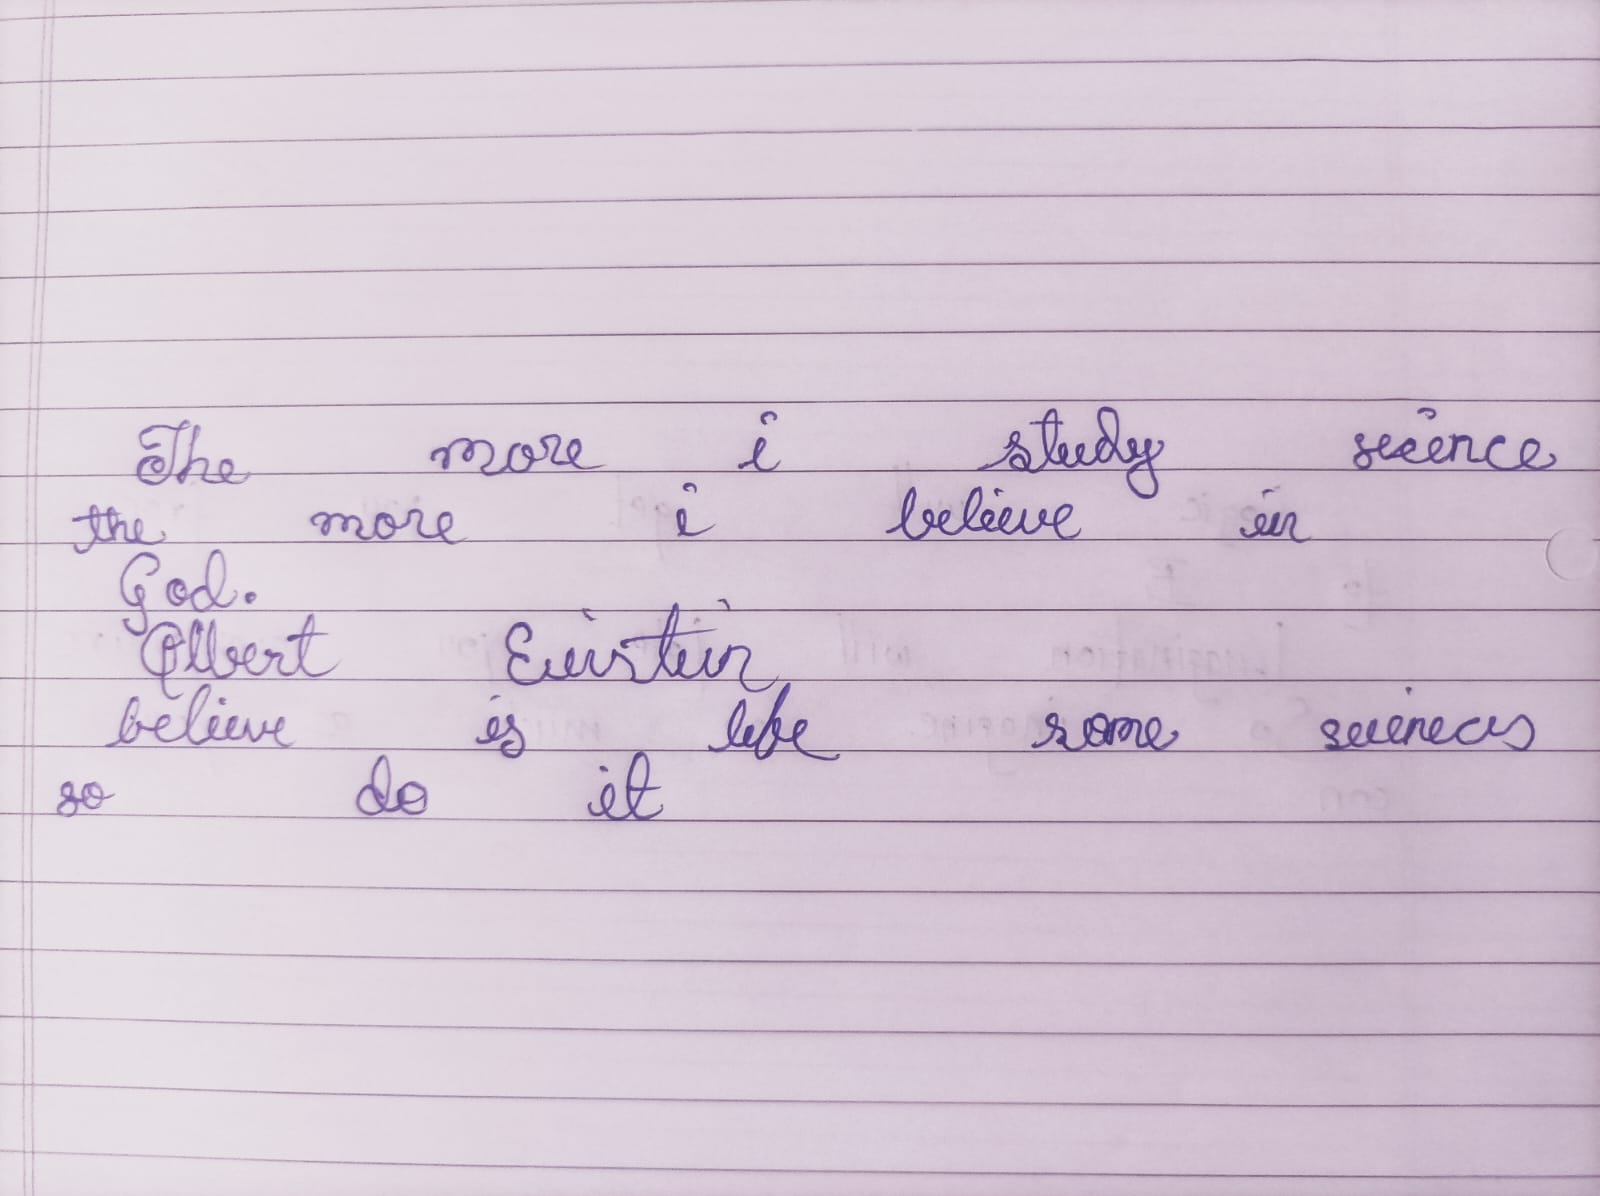 The more i study science
the more i believe in
God.
Albert Einstein
believe is life some sciences
so do it